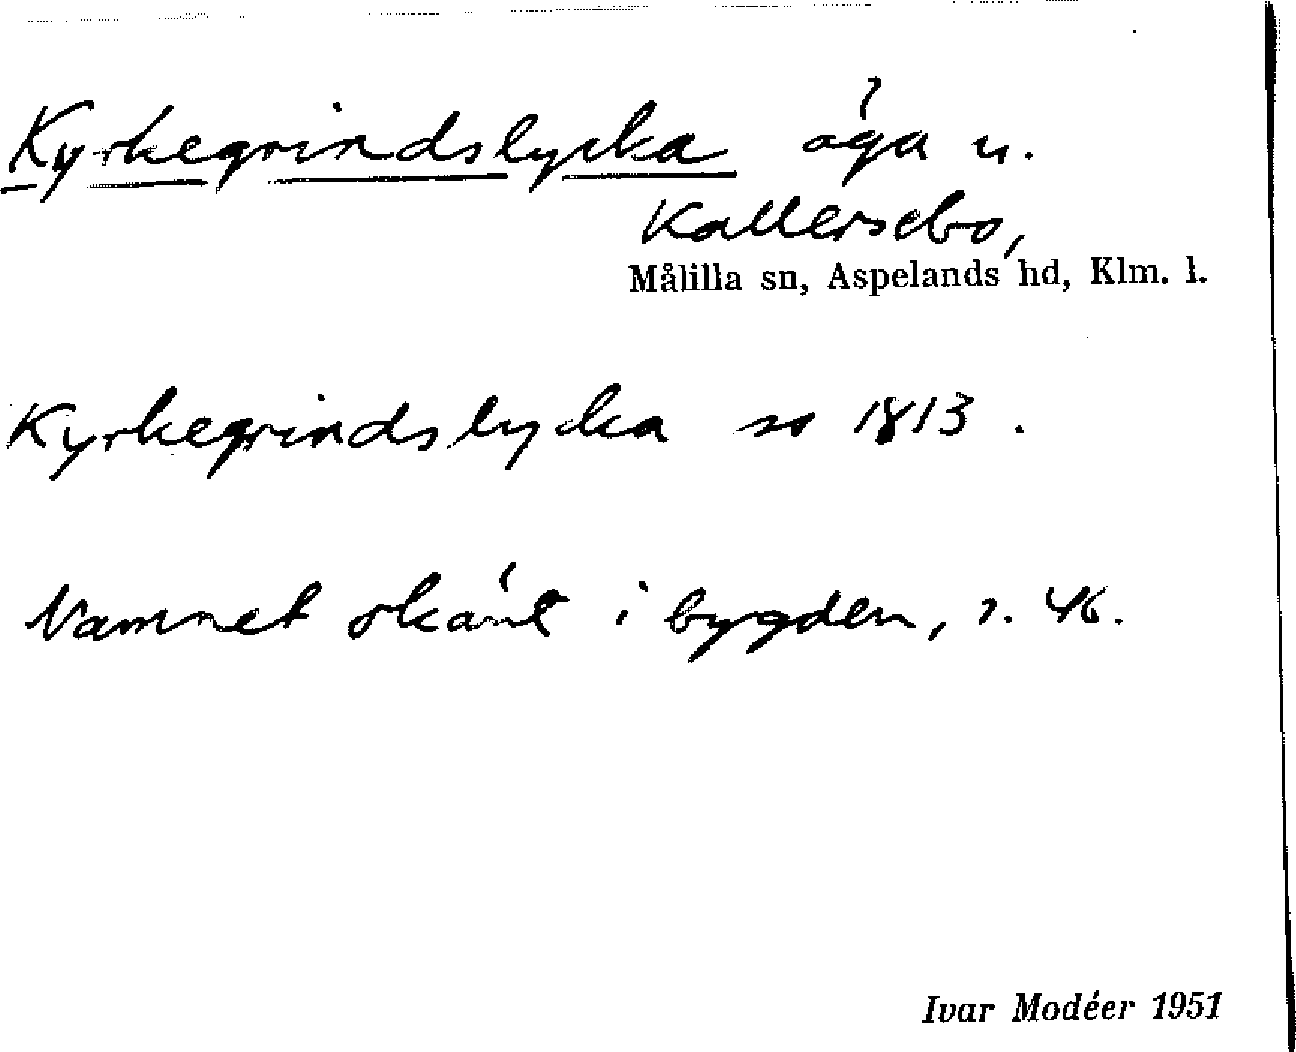 Kyrkegrindslycka äga u.
Kallersebo,
Målilla sn, Aspelands hd, Klm. l.
Kyrkegrindslycka so 1813.
Namnet okänt i bygden, s. 46.
Ivar Modéer 1951